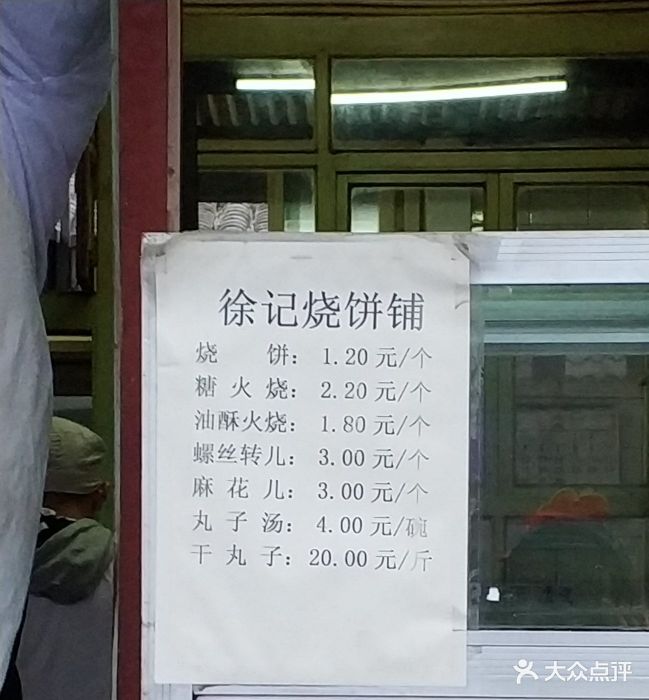 徐记烧饼铺
烧饼：1.20元/个
糖火烧：2.20元/个
油酥火烧：1.80元/个
螺丝转儿：3.00元/个
麻花儿：3.00元/个
丸子汤：4.00元/碗
干丸子：20.00元/斤
大众点评